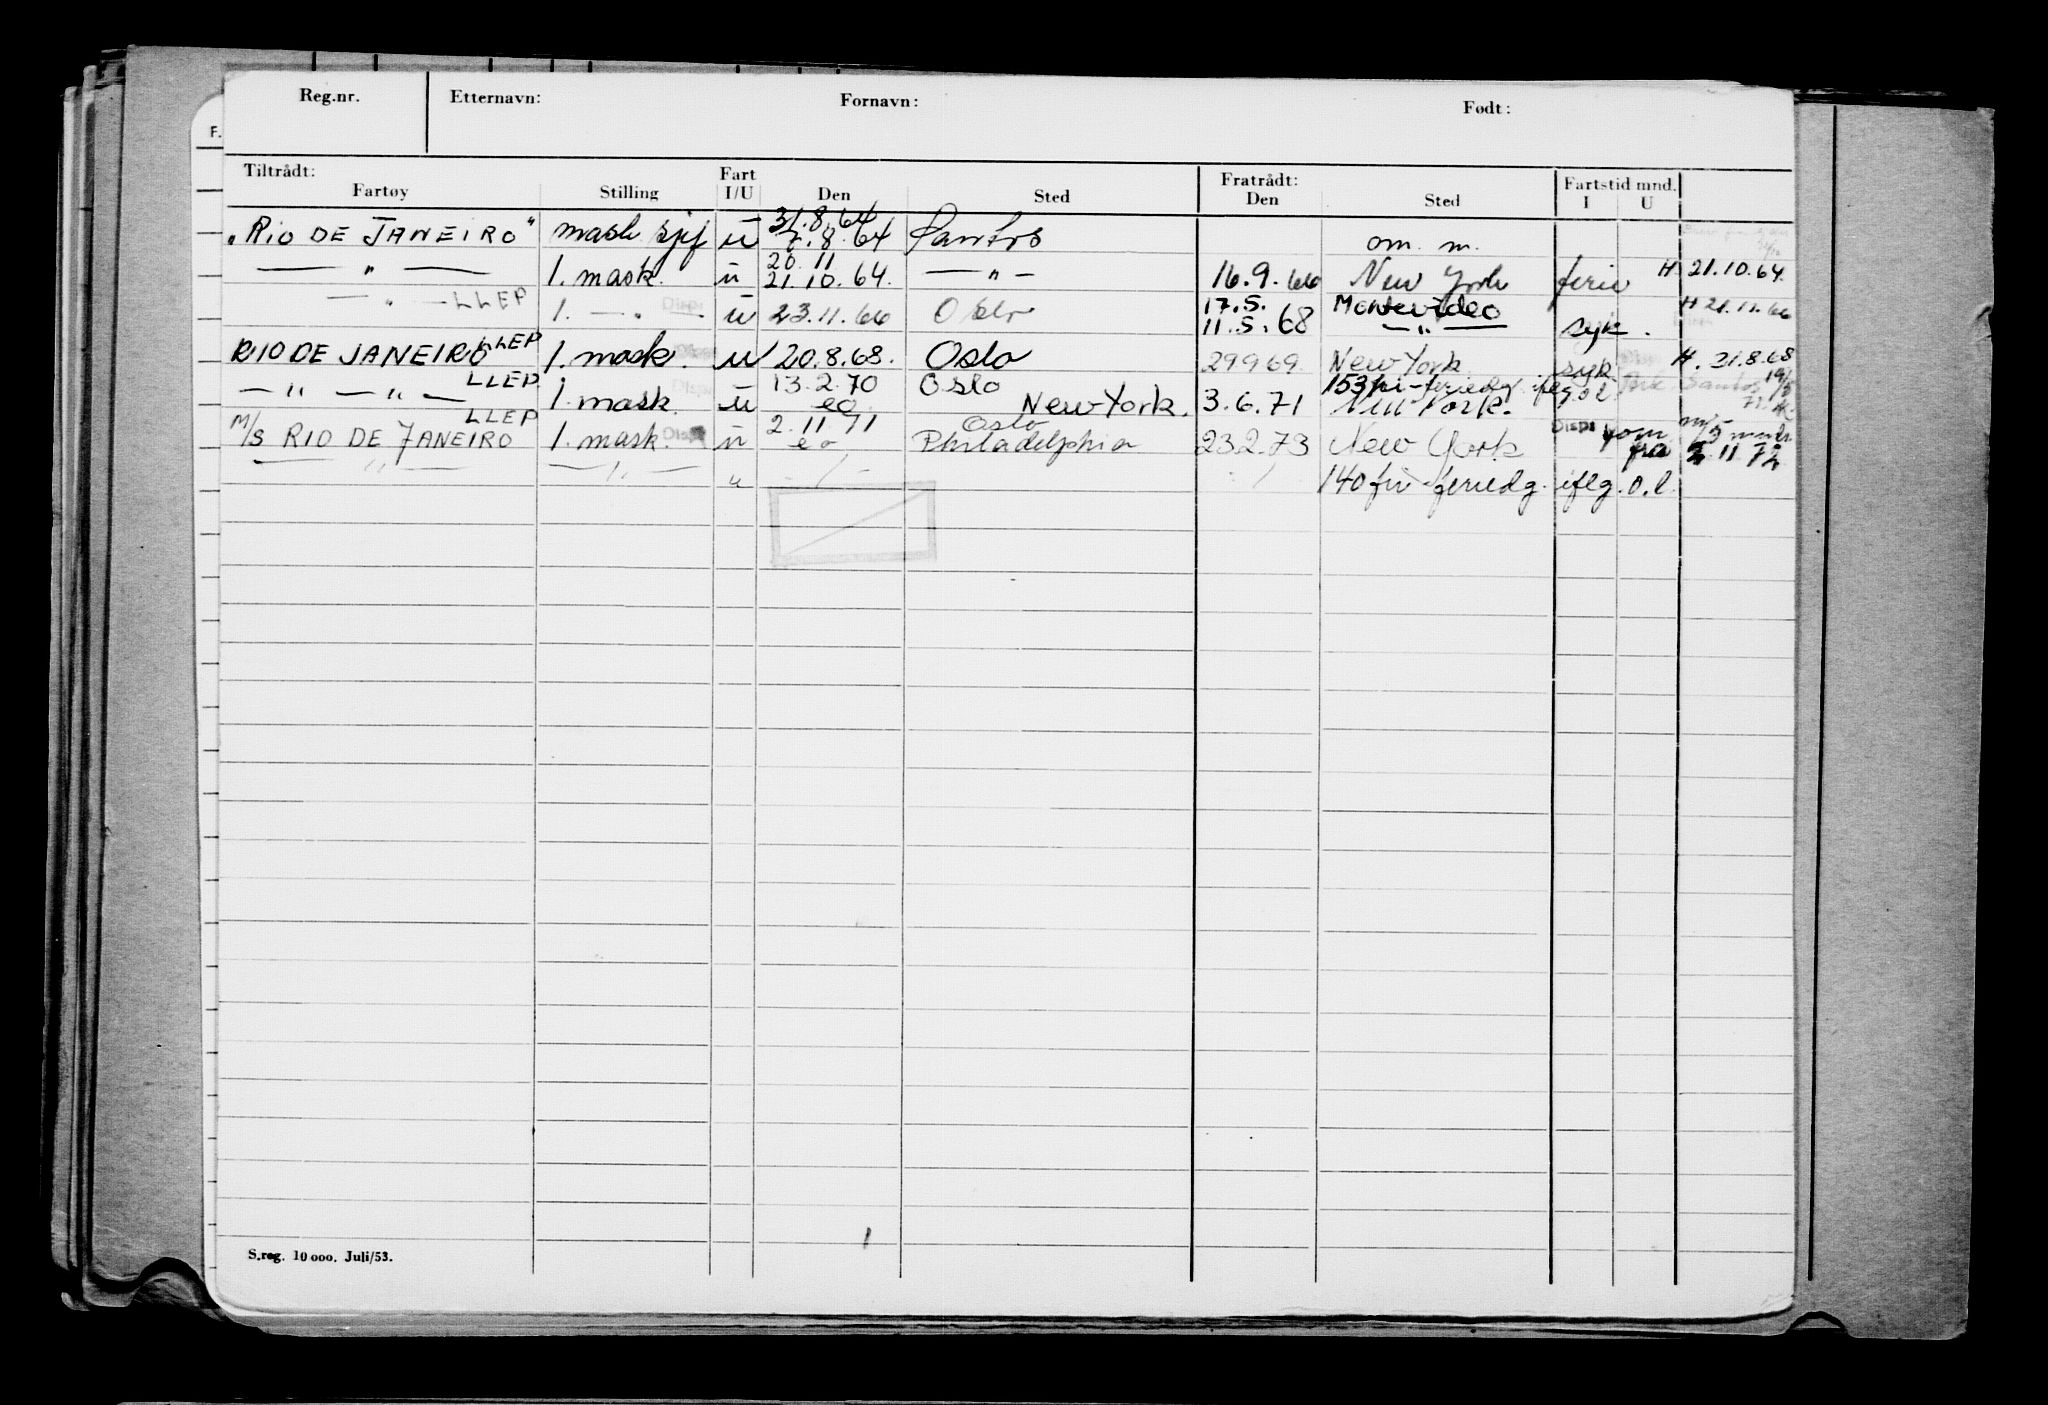 Reg.nr. Etternavn: Fornavn: Født:
F.
Tiltrådt: Fart Fratrådt: Fartstid mnd.
Fartøy Stilling I/U Den Sted Den Sted I U
31.8.64
„RIO DE JANEIRO" mask sjef u 7.8.64 Santos om. m.
20.11
— " — 1. mask. u 21.10.64. — " — 16.9.66 New York ferie H 21.10.64
— " — LLEP 1. — " — Disp u 23.11.66 Oslo 17.5. Montevideo H 21.11.66
11.5.68 — " — syk.
LLEP
RIO DE JANEIRO 1. mask. u 20.8.68. Oslo 29969. New York syk H. 21.8.68
LLEP 13.2.70 Oslo 153 fri-feriedg. iflg. o.l.
— " — " — 1. mask. u eo. New York. 3.6.71 New York. Santos 19/5
LLEP 2.11.71 Oslo
M/S RIO DE JANEIRO 1. mask. Disp u eo Philadelphia 23.2.73 New York Disp fom m/5 mndr
— " — — " — u — / — / fra 2.11.72
140 fri-feriedg. iflg. o.l.
S.reg. 10 000. Juli/53.